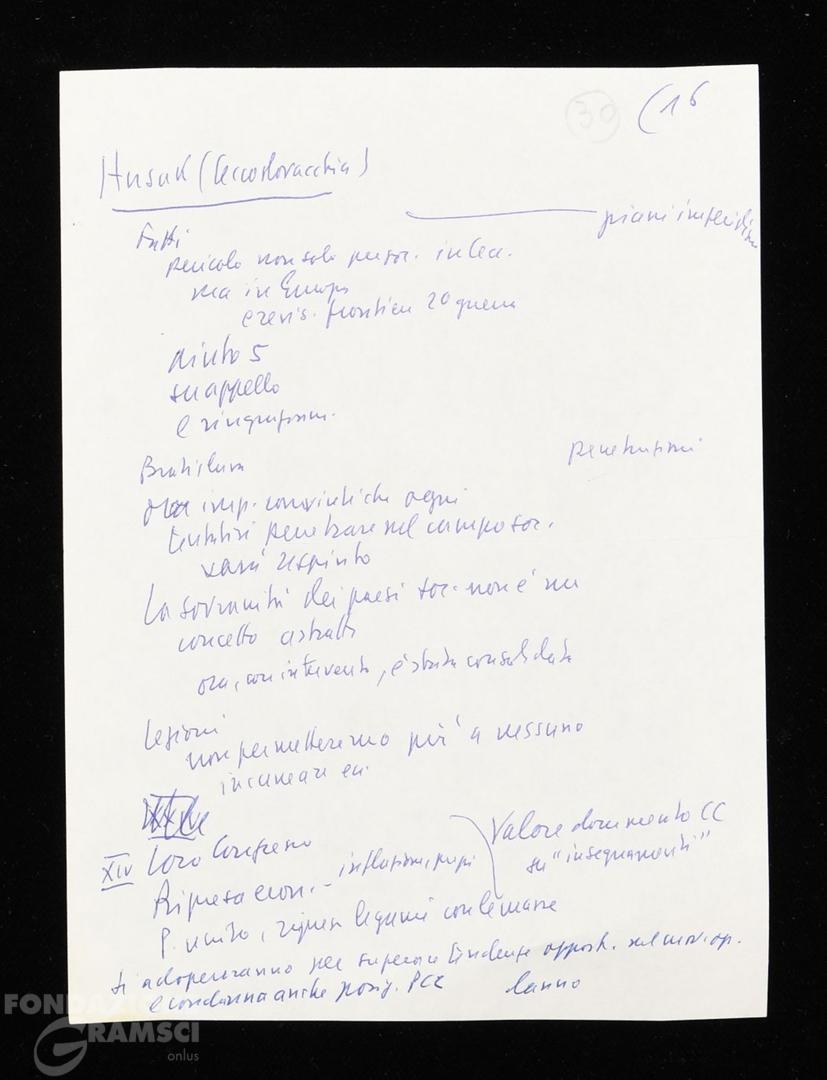 30 (16
Husak (Cecoslovacchia)
piani imperialisti
Fatti
pericolo non solo per soc. in Cec.
ma in Europa
e revis. frontiere 2a guerra
aiuto 5
su appello
e ringraziam.
Bratislava
penetrazioni
ora imp. convinti che ogni
tentativi penetrare nel campo soc.
sarà respinto
La sovranità dei paesi soc. non è un
concetto astratto
ora, con intervento, è stata consolidata
Lezioni
non permetteremo più a nessuno
incuneare
XIV loro Congresso
Valore documento CC
su "insegnamenti"
Ripresa econ. - inflazione, paghe
P. unito, ripresi legami con le masse
Si adopereranno per superare tendenze opport. nel mov. op.
e condanna anche posiz. PCC
FONDAZIONE
GRAMSCI
onlus